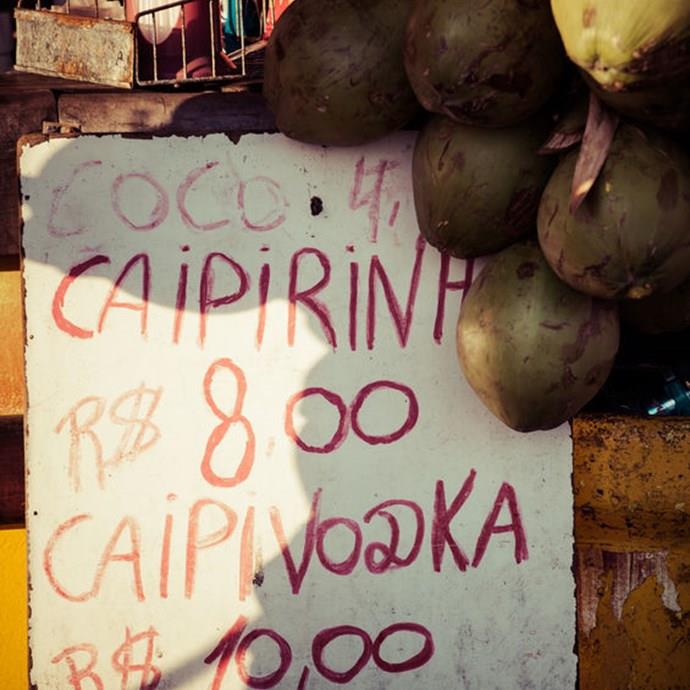 COCO 4,
CAIPIRINH
R$ 8.00
CAIPIVODKA
R$ 10,00